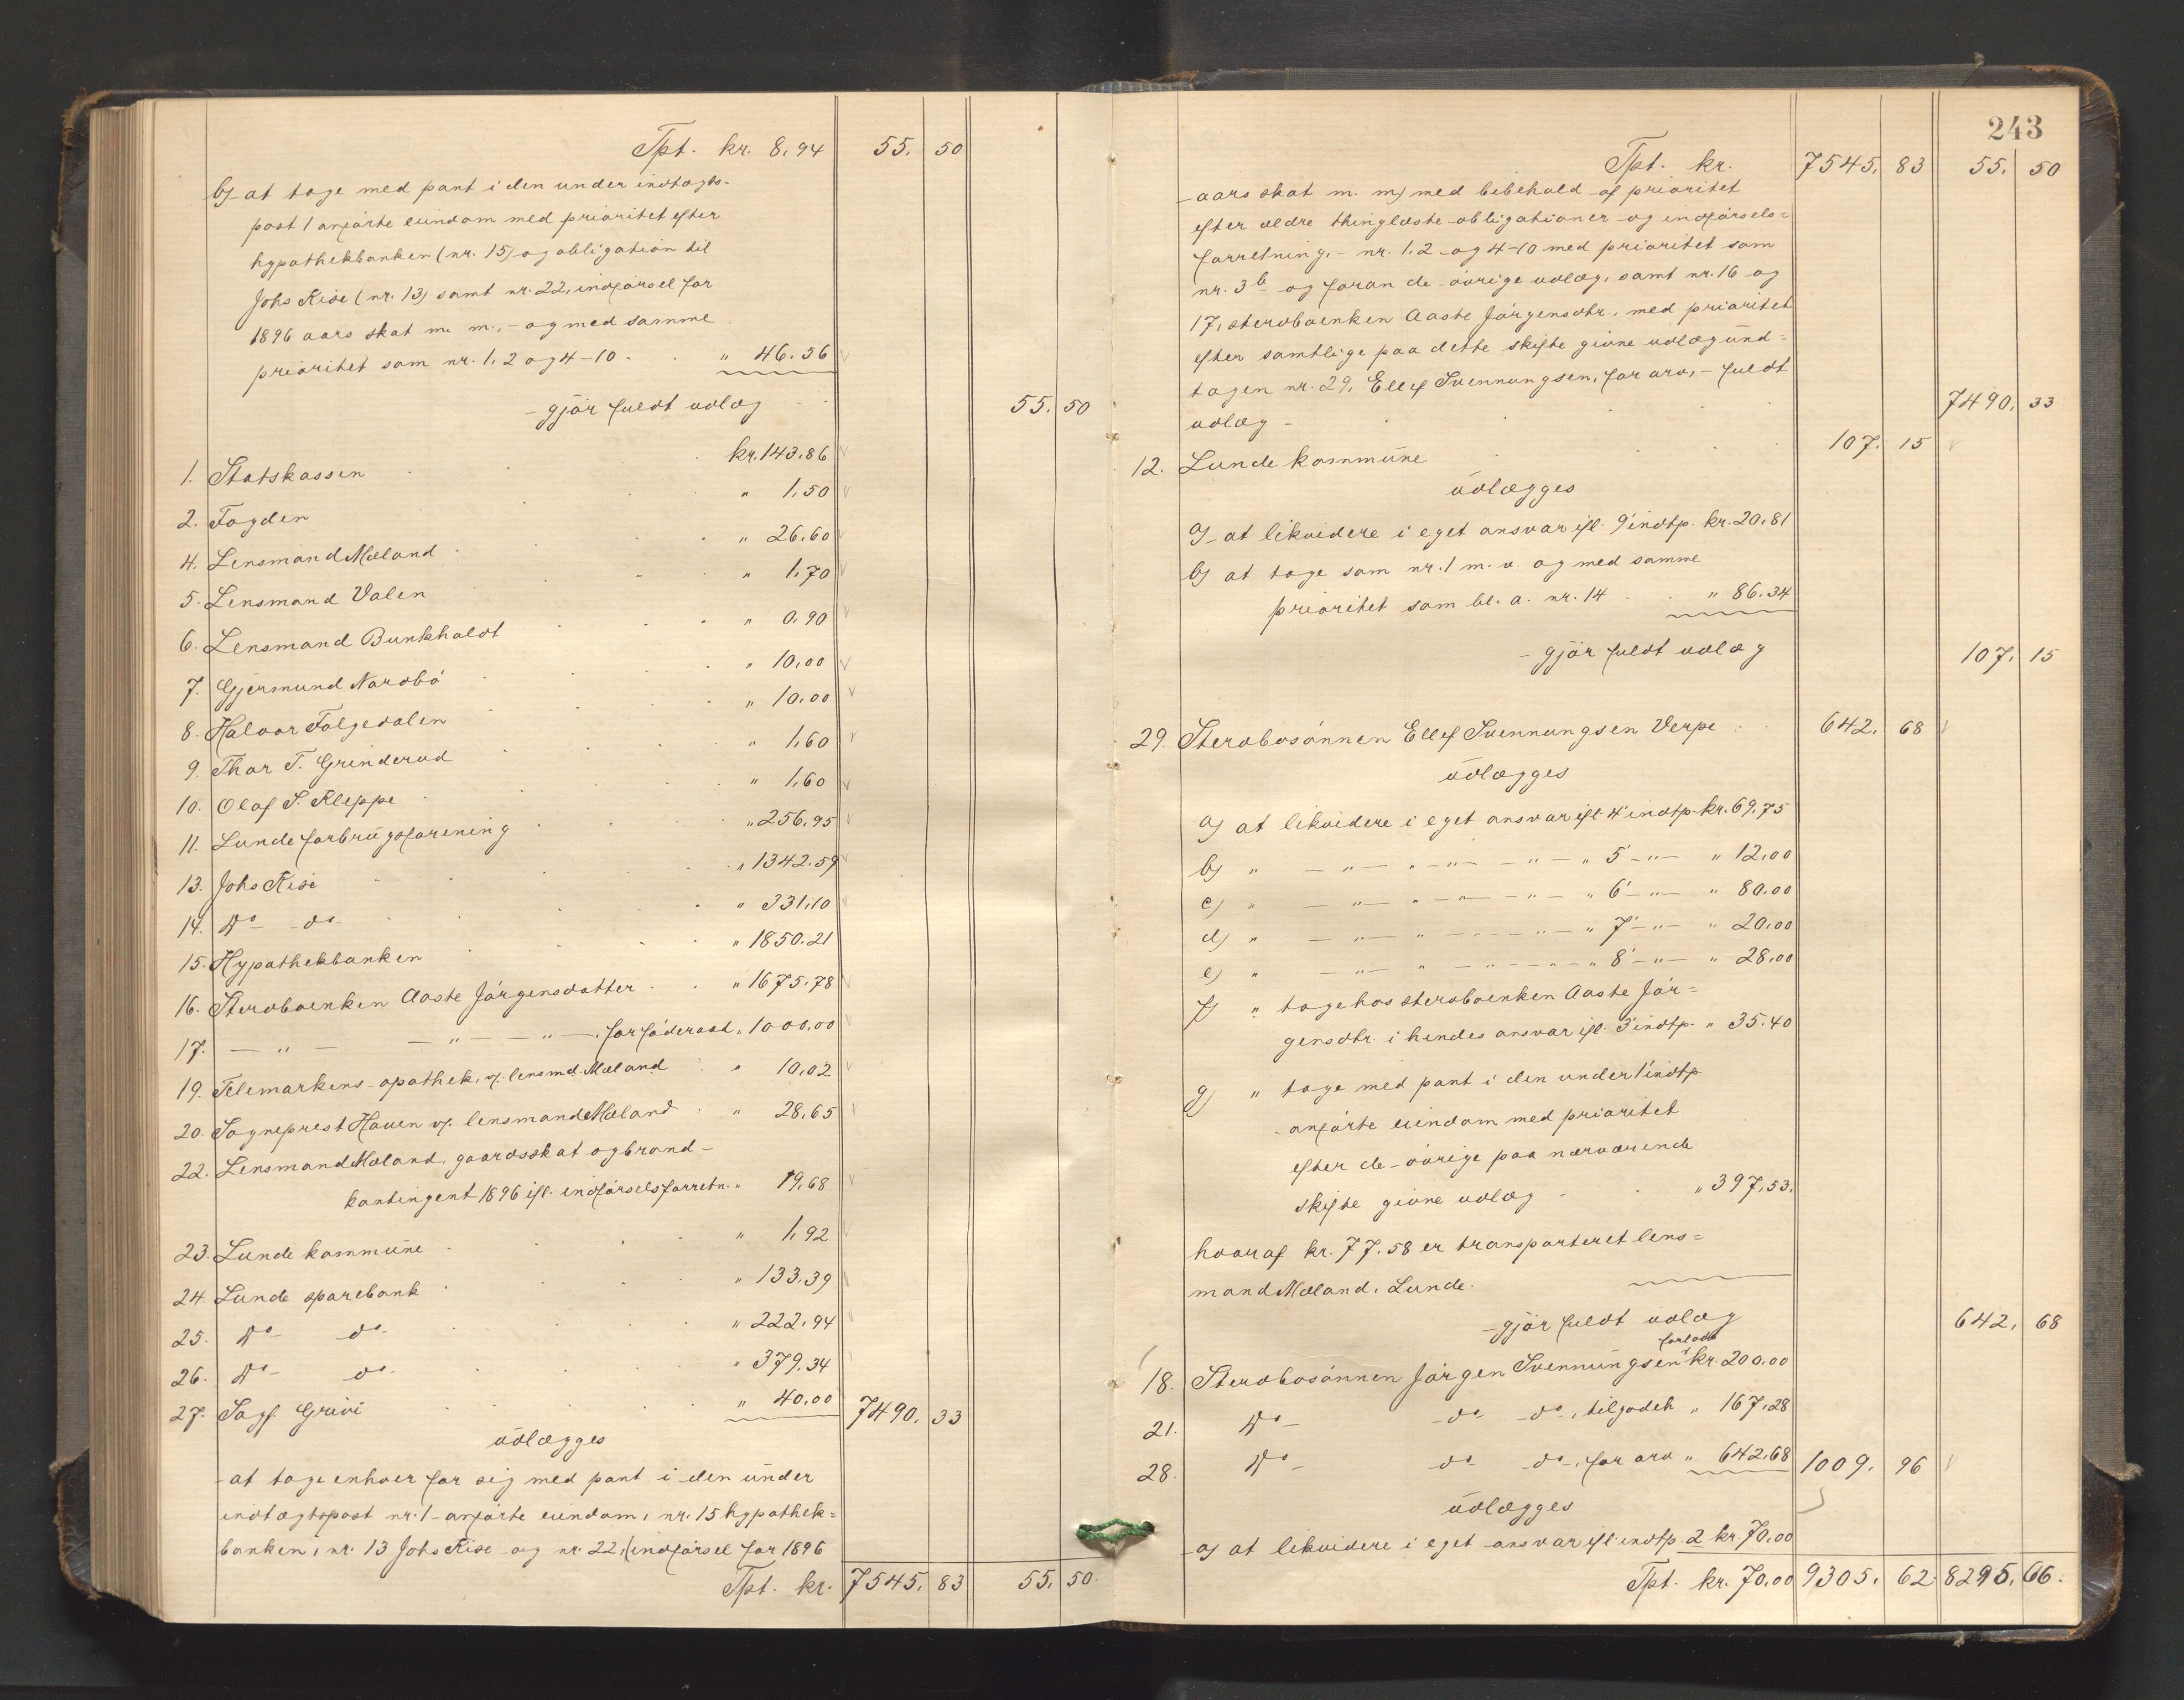 Tpt. kr. 8,94 55, 50
b) at tage med pant i den under indtægts-
post 1 anførte eiendom med prioritet efter
hypothekbanken (nr. 15) og obligation til
Johs Rise (nr. 13) samt nr. 22, indførsel for
1896 aars skat m. m., - og med samme
prioritet som nr. 1, 2 og 4-10 - " 46.56
- gjør fuldt udlæg 55, 50
1. Statskassen kr. 143.86
2. Fogden " 1,50
4. Lensmand Mæland " 26,60
5. Lensmand Valen " 1,70
6. Lensmand Bunkholdt " 0,90
7. Gjermund Nordbø " 10,00
8. Halvor Folgedalen " 10,00
9. Thor T. Grinderud " 1,60
10. Olaf S. Kleppe " 1,60
11. Lunde forbrugsforening " 256,95
13. Johs Rise " 1342.59
14. Do - do - " 331,10
15. Hypothekbanken " 1850.21
16. Stervboenken Aaste Jørgensdatter " 1675.78
17. - " - - " - - " -, for føderaad " 1000,00
19. Telemarkens apothek, v. lensmd. Mæland " 10,02
20. Sogneprest Hauen v. lensmand Mæland " 28,65
22. Lensmand Mæland, gaardsskat og brand-
kontingent 1896 ifl. indførselsforretn. " 19,68
23. Lunde kommune " 1,92
24. Lunde sparebank " 133,39
25. Do - do - " 222,94
26. Do - do - " 379,34
27. Sagf. Grivi " 40,00 7490, 33
udlægges
at tage enhver for sig med pant i den under
indtægtspost nr. 1 anførte eiendom, nr. 15 hypothek=
banken, nr. 13 Johs Rise og nr. 22, (indførsel for 1896
Tpt. kr. 7545, 83 55, 50.
243
Tpt. kr. 7545, 83 55, 50
aars skat m. m) med bibehold af prioritet
efter ældre thinglæste obligationer og indførsels=
forretning, - nr. 1, 2 og 4-10 med prioritet som
nr. 3 b og foran de øvrige udlæg, samt nr. 16 og
17, stervboenken Aaste Jørgensdtr., med prioritet
efter samtlige paa dette skifte givne udlæg und=
tagen nr. 29, Ellef Svennungsen, for arv, - fuldt
udlæg - 7490, 33
12. Lunde kommune 107, 15
udlægges
a) at likvidere i eget ansvar ifl. 9' indtp. kr. 20,81
b) at tage som nr. 1 m. v. og med samme
prioritet som bl. a. nr. 14 " 86.34
- gjør fuldt udlæg 107, 15
29. Stervbosønnen Ellef Svennungsen Verpe 642, 68
udlægges
a) at likvidere i eget ansvar ifl. 4' indtp. kr. 69,75
b) " - " - " - " - - " - " 5' - " - " 12,00
c) " - " - " - " - - " - " 6' - " - " 80.00
d) " - " - " - " - - " - " 7' - " - " 20,00
e) " - " - " - " - - " - " 8' - " - " 28,00
f) " tage hos stervboenken Aaste Jør=
gensdtr. i hendes ansvar ifl. 3' indtp. " 35.40
g) " tage med pant i den under 1' indtp.
anførte eiendom med prioritet
efter de øvrige paa nærværende
skifte givne udlæg " 397,53.
hvoraf kr. 77.58 er transporteret lens=
mand Mæland, Lunde.
- gjør fuldt udlæg 642, 68
forlods
18. Stervbosønnen Jørgen Svennungsen kr. 200.00
21. Do - do - do -, tilgodeh " 167,28
28. Do - do - do -, for arv " 642,68 1009, 96
udlægges
a) at likvidere i eget ansvar ifl. indtp. 2 kr. 70,00
Tpt. kr. 70,00 9305, 62 8295, 66.